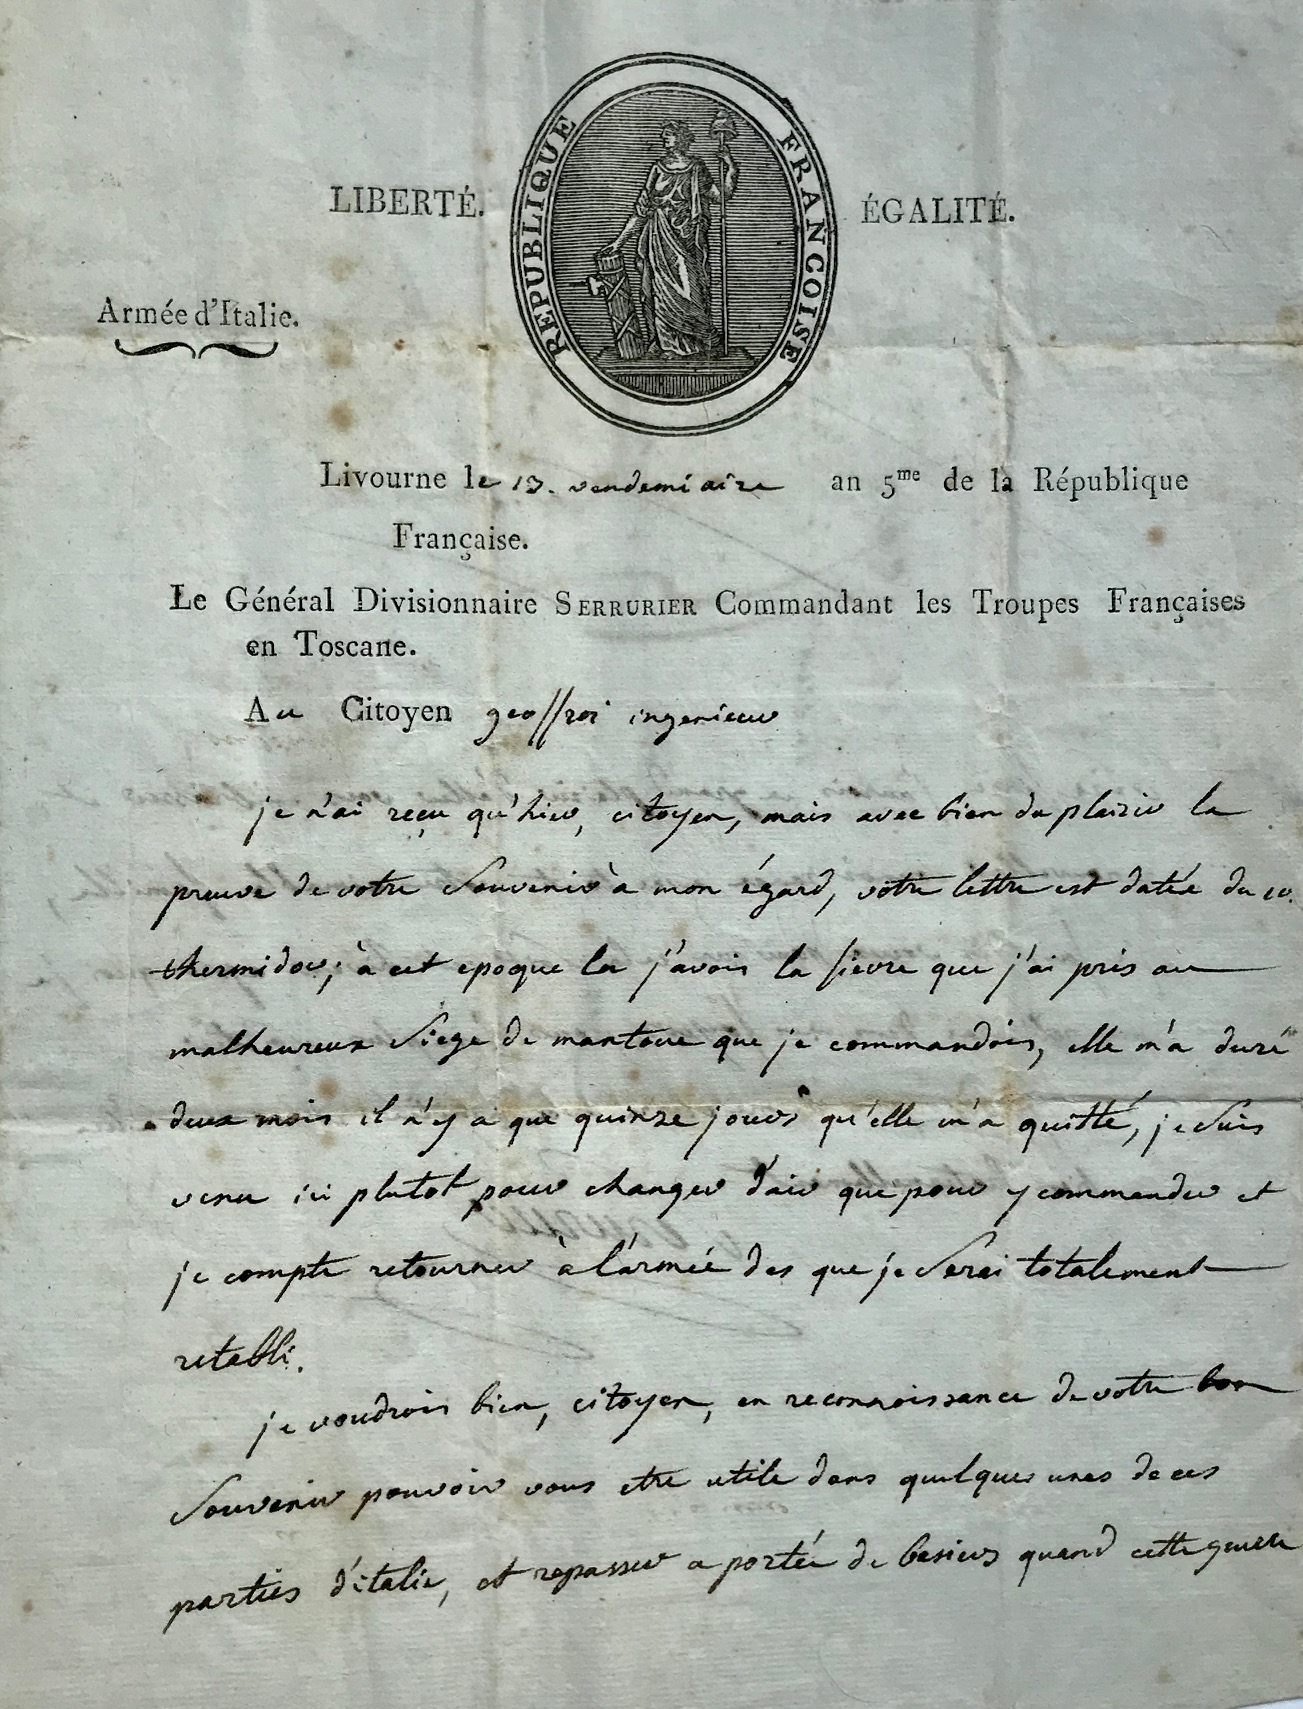 LIBERTÉ.
RÉPUBLIQUE FRANÇOISE
ÉGALITÉ.
Armée d'Italie.
Livourne le 13. vendemiaire an 5me de la République
Française.
Le Général Divisionnaire SERRURIER Commandant les Troupes Françaises
en Toscane.
Au Citoyen geoffroi ingenieur
je n'ai reçu qu'hier, citoyen, mais avec bien du plaisir la
preuve de votre Souvenir à mon égard, votre lettre est datée du 10.
thermidor; à cet epoque la j'avois la fievre que j'ai pris au
malheureux Siege de mantoue que je commandois, elle m'a duré
deux mois il n'y a que quinze jours qu'elle m'a quitté, je Suis
venu ici plutot pour changer d'air que pour y commander et
je compte retourner à l'armée des que je Serai totalement
retabli.
je voudrois bien, citoyen, en reconnoissance de votre bon
Souvenir pouvoir vous etre utile dans quelques unes de ces
parties d'italie, et repasser a portée de besiers quand cette guerre